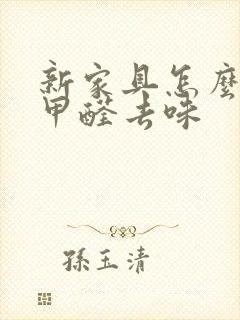 新家具怎麼
甲醛去味
孫玉清